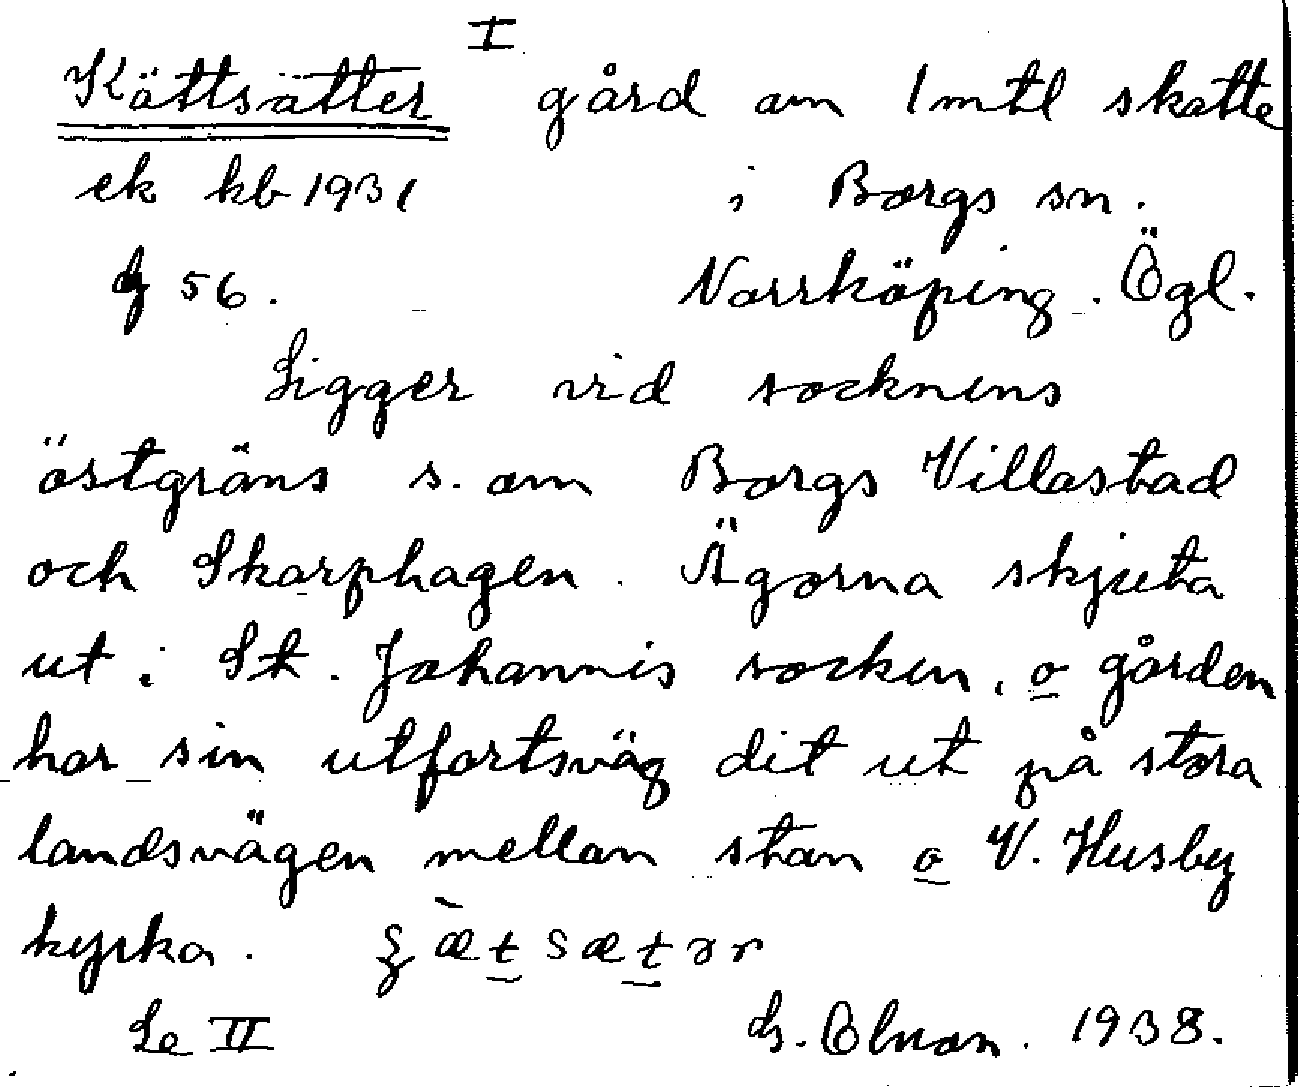 I
Kättsätter gård om 1 mtl skatte
ek kb 1931 i Borgs sn.
J 56. Norrköping. Ögl.
Ligger vid socknens
östgräns s. om Borgs Villastad
och Skarphagen. Ägorna skjuta
ut i St. Johannis socken, o gården
har sin utfartsväg dit ut på stora
landsvägen mellan stan o V. Husby
kyrka. ʒæ̀tsætər
Se II 1938.